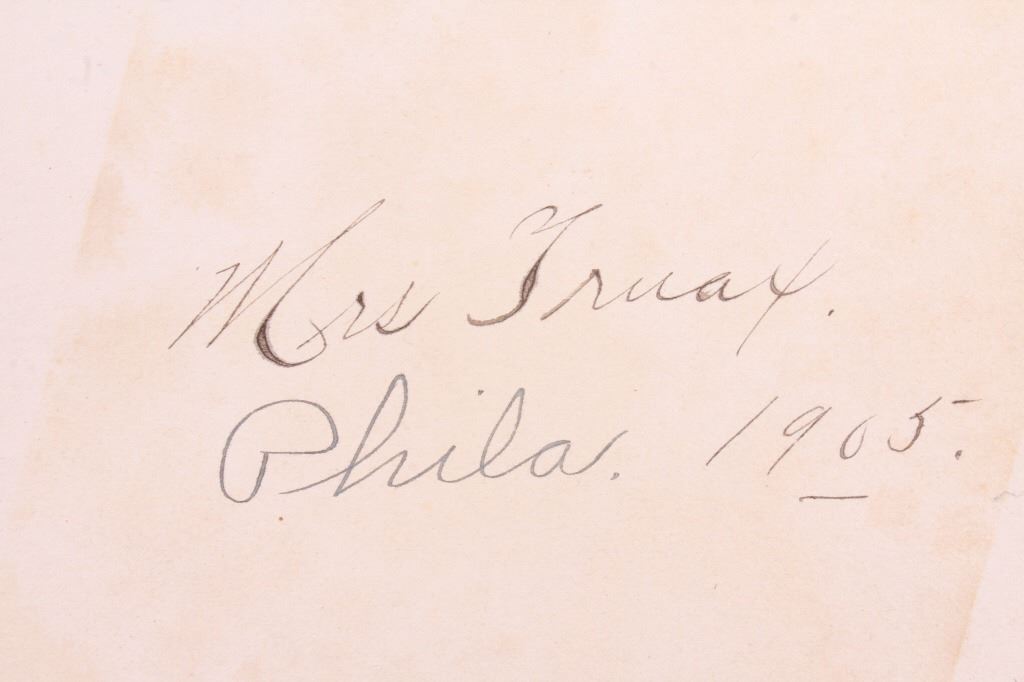 Mrs Truax.
Phila. 1905.